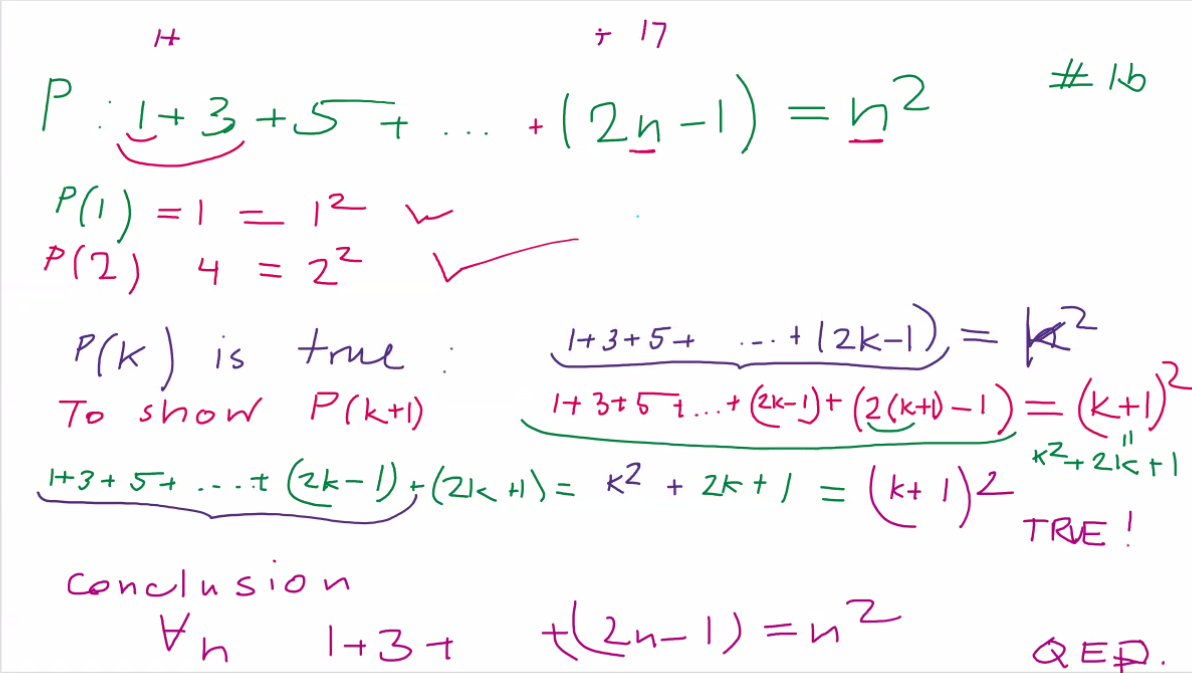 1+ + 17
P: 1+3+5+ ... +(2n-1) = n² #1b
P(1) = 1 = 1² ✓
P(2) 4 = 2² ✓
P(k) is true : 1+3+5+ ...+(2k-1) = k²
To show P(k+1) 1+3+5+...+(2k-1)+(2(k+1)-1) = (k+1)²
= k²+2k+1
1+3+5+ ...+ (2k-1)+(2k+1) = k² + 2k+1 = (k+1)2
TRUE!
conclusion
∀n 1+3+ +(2n-1) = n²
QED.